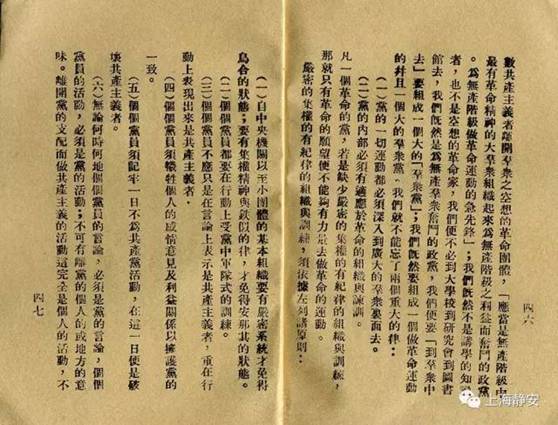 數共產主義者離開羣衆之空想的革命團體，「應當是無產階級中
最有革命精神的大羣衆組織起來爲無產階級之利益而奮鬥的政黨
，爲無產階級做革命運動的急先鋒」；我們既然不是講學的知識
者，也不是空想的革命家，我們便不必到大學校到研究會到圖書
館去，我們既然是爲無產羣衆奮鬥的政黨，我們便要「到羣衆中
去」要組成一個大的「羣衆黨」；我們既然要組成一個做革命運動
的幷且一個大的羣衆黨，我們就不能忘了兩個重大的律：
(一)黨的一切運動都必須深入到廣大的羣衆裏面去。
(二)黨的內部必須有適應於革命的組織與訓練。
凡一個革命的黨，若是缺少嚴密的集權的有紀律的組織與訓練，
那就只有革命的願望便不能夠有力量去做革命的運動。
嚴密的集權的有紀律的組織與訓練，須依據左列諸原則：
四六
(一)自中央機關以至小團體的基本組織要有嚴密系統才免得
烏合的狀態；要有集權精神與鐵似的律，才免得安那其的狀態。
(二)個個黨員都要在行動上受黨中軍隊式的訓練。
(三)個個黨員不應只是在言論上表示是共產主義者，重在行
動上表現出來是共產主義者。
(四)個個黨員須犧牲個人的感情意見及利益關係以擁護黨的
一致。
(五)個個黨員須記牢一日不爲共產黨活動，在這一日便是破
壞共產主義者。
(六)無論何時何地個個黨員的言論，必須是黨的言論，個個
黨員的活動，必須是黨的活動；不可有離黨的個人的或地方的意
味。離開黨的支配而做共產主義的活動這完全是個人的活動，不
四七
上海静安